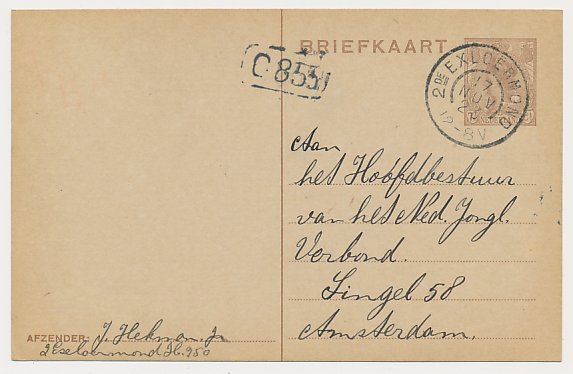 BRIEFKAART
C 853
2DE EXLOERMOND
17
NOV
12-8V
Aan
het Hoofdbestuur
van het Ned. Jongl.
Verbond.
Singel 58
Amsterdam.
AFZENDER: J. Hekman. Jr
2 Exloermond H. 250